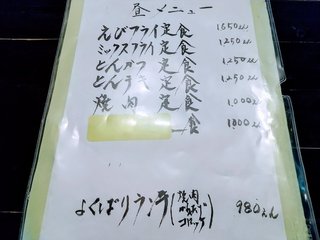 昼メニュー
えびフライ定食 1650えん
ミックスフライ定食 1250えん
とんかつ定食 1,250えん
とんうき定食 1,250えん
焼肉定食 1,000えん
食 1000えん
よくばりランチ(焼肉 からあげ コロッケ) 980えん